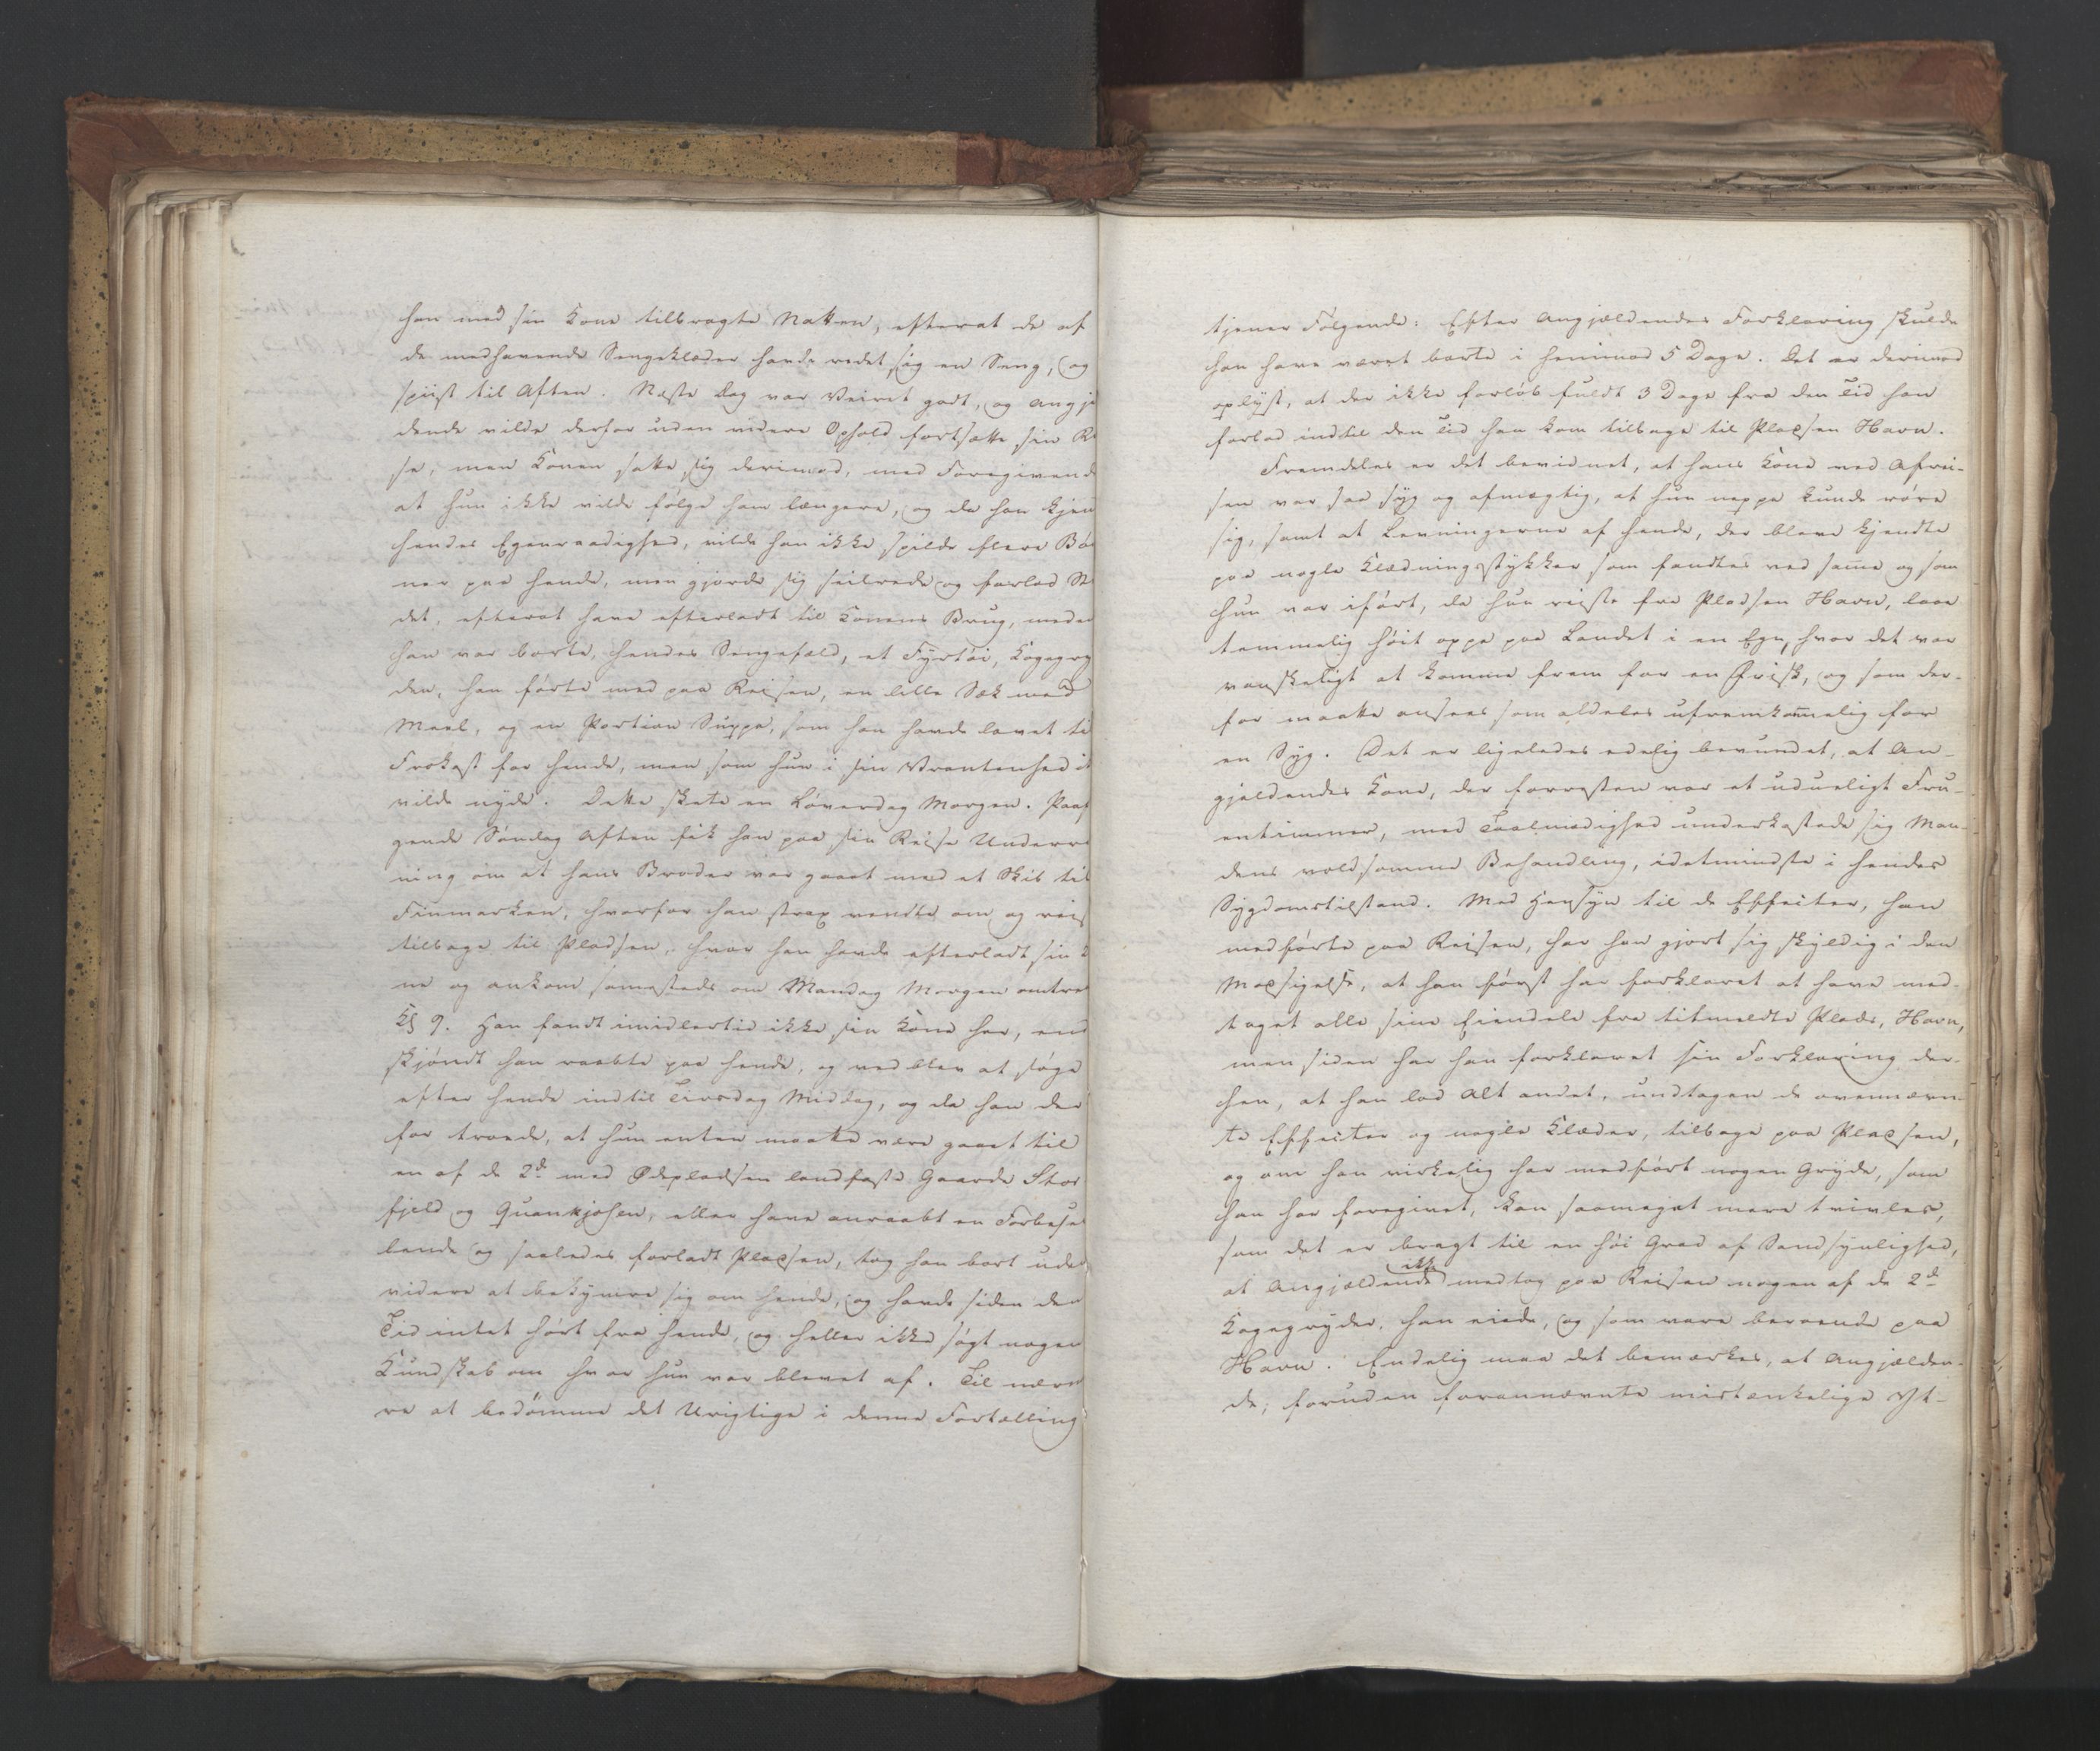 han med sin Kone tilbragte Natten, efterat de af
de medhavende Sengeklæder havde redet sig en Seng, og
spiist til Aften. Næste Dag var Veiret godt, og Angjæ
dende vilde derfor uden videre Ophold fortsætte sin Re
se, men Konen satte sig derimod, med Foregivende
at hun ikke vilde følge ham længere, og da han kjen
hendes Egenraadighed, vilde han ikke spilde flere Bø
ner paa hende, men gjorde sig seilrede og forlod St
det, efterat have efterladt til Konens Brug, meden
han var borte, hendes Sengefæld, et Fyrtøi, Kogegry
den, han førte med paa Reisen, en lille Sæk med
Meel, og en Portion Suppe, som han havde lavet ti
Frokost for hende, men som hun i sin Vrantenhed ik
vilde nyde. Dette skete en Løverdag Morgen. Paaf
gende Søndag Aften fik han paa sin Reise Underre
ning om at hans Broder var gaaet med et Skib til
Finmarken, hvorfor han strax vendte om og reis
tilbage til Pladsen, hvor han havde efterladt sin K
ne og ankom samesteds om Mandag Morgen omtre
Kl 9. Han fandt imidlertid ikke sin Kone her, end
skjøndt han raabte paa hende, og ved blev at søge
efter hende indtil Tirsdag Middag, og da han der
for troede, at hun enten maatte være gaaet til
en af de 2de med Ødepladsen landfaste Gaarde Stor
fjeld og Quankjosen, eller have anraabt en Forbisei
lende og saaledes forladt Pladsen, tog han bort uden
videre at bekymre sig om hende, og havde siden den
Tid intet hørt fra hende, og heller ikke søgt nogen
Kundskab om hvor hun var blevet af. Til nærme
re at bedømme det Urigtige i denne Fortælling
tjener Følgende: Efter Angjældendes Forklaring skulde
han have været borte i henimod 5 Dage. Det er derimod
oplyst, at der ikke forløb fuldt 3 Dage fra den Tid han
forlod indtil den Tid han kom tilbage til Pladsen Havn.
Fremdeles er det bevidnet, at hans Kone ved Afrei-
sen var saa syg og afmægtig, at hun neppe kunde røre
sig, samt at Levningerne af hende, der bleve kjendte
paa nogle Klædningsstykker som fandtes ved samme og som
hun var iført, da hun reiste fra Pladsen Havn, laae
temmelig høit oppe paa Landet i en Egn, hvor det var
vanskeligt at komme frem for en Frisk, og som der-
for maatte ansees som aldeles ufremkommelig for
en Syg. Det er ligeledes edelig bevundet, at An-
gjældendes Kone, der forresten var et udueligt Fru-
entimmer, med Taalmodighed underkastede sig Man-
dens voldsomme Behandling, idetmindste i hendes
Sygdomstilstand. Med Hensyn til de Effecter, han
medførte paa Reisen, har han gjort sig skyldig i den
Modsigelse, at han først har forklaret at have med
taget alle sine Eiendele fra titmeldte Plads, Havn,
men siden har han forklaret sin Forklaring der-
hen, at han lod Alt andet, undtagen de ovennævn-
te Effecter og nogle Klæder, tilbage paa Pladsen,
og om han virkelig har medført nogen Gryde, som
han har foregivet, kan saameget mere tvivles,
som det er bragt til en høi Grad af Sandsynlighed,
at Angjældende ikke medtog paa Reisen nogen af de 2de
Kogegryder, han eiede, og som vare beroende paa
Havn. Endelig maa det bemærkes, at Angjælden-
de, foruden forannævnte mistænkelige Yt-